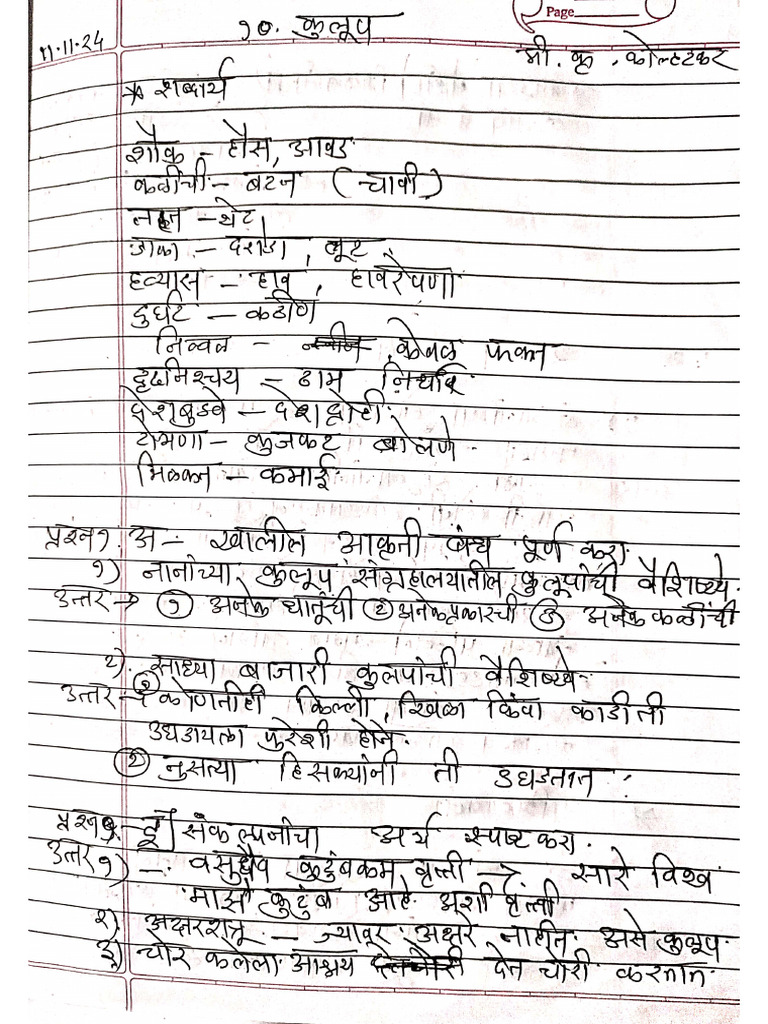 Page
१०. कुलूप
११.११.24
श्री. कृ. कोल्हटकर
* शब्दार्थ
शौक – हौस, आवड
कळींची – बटन (चावी)
थेट
डाका – दरोडा, लूट
हव्यास – हाव, हावरेपणा
दुर्घट – कठीण
निव्वळ – केवळ फक्त
दृढनिश्चय – ठाम निर्धार
देशबुडवे – देशद्रोही
टोमणा – कुजकट बोलणे
मिळकत – कमाई
प्रश्न१. अ – खालील आकृती बंध पूर्ण करा.
१) नानांच्या कुलूप संग्रहालयातील कुलूपांची वैशिष्ट्ये.
उत्तर → ① अनेक धातूंची ② अनेकप्रकारची ③ अनेक कळींची
२) साध्या बाजारी कुलपांची वैशिष्ट्ये
उत्तर – ① कोणतीही किल्ली, खिळा किंवा काडी ती
उघडायला पुरेशी होते
② नुसत्या हिसक्यांनी ती उघडतात.
प्रश्न – इ] संकल्पनांचा अर्थ स्पष्ट करा.
उत्तर १) – वसुधैव कुटुंबकम वृत्ती → सारे विश्व
माझे कुटुंब आहे अशी वृत्ती
२) अक्षरशत्रू – ज्यावर अक्षरे नाहीत असे कुलूप
३) चोर कलेला आश्रय देत चोरी करतात